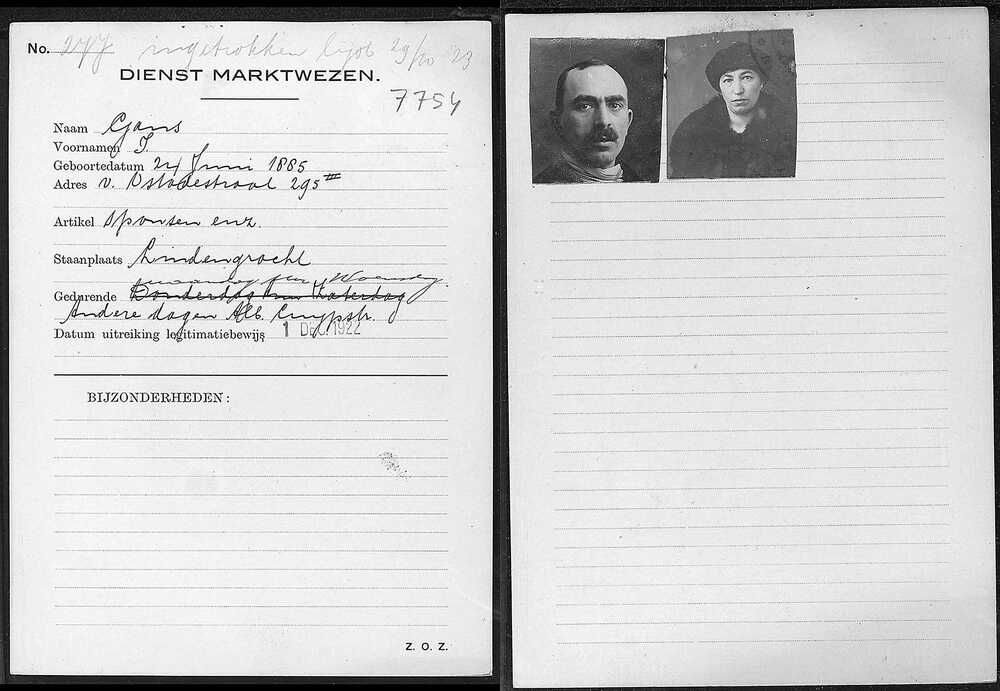 No. 277 ingetrokken lijst 29/10 '23
DIENST MARKTWEZEN.
7754
Naam Gans
Voornamen I.
Geboortedatum 24 Juni 1885
Adres v. Ostadestraat 295 III
Artikel sponsen enz.
Staanplaats Lindengracht
maandag en Woensdag.
Gedurende Donderdag en Zaterdag
Andere dagen Alb. Cuypstr.
Datum uitreiking legitimatiebewijs 1 DEC. 1922
BIJZONDERHEDEN:
Z. O. Z.